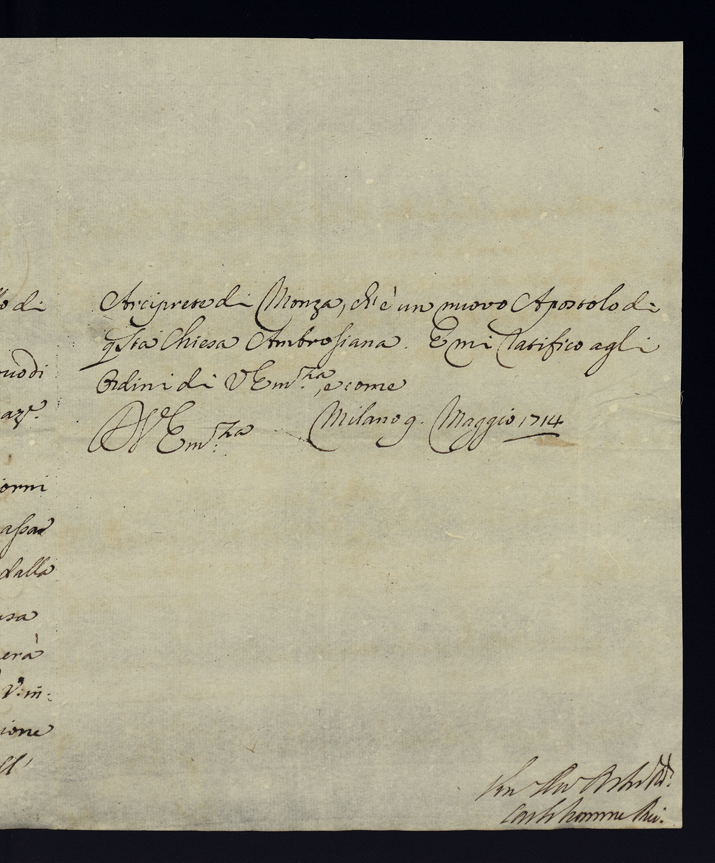 o di
uodi
az.e
iorni
assa
dalla
usa
erà
V. m:
ione
ll'
Arciprete di Monza, ch'è un nuovo Apostolo di
q.sta Chiesa Ambrosiana. E mi ratifico agli
Ordini di V Em.za, e come
Di V Em.za Milano 9. Maggio 1714